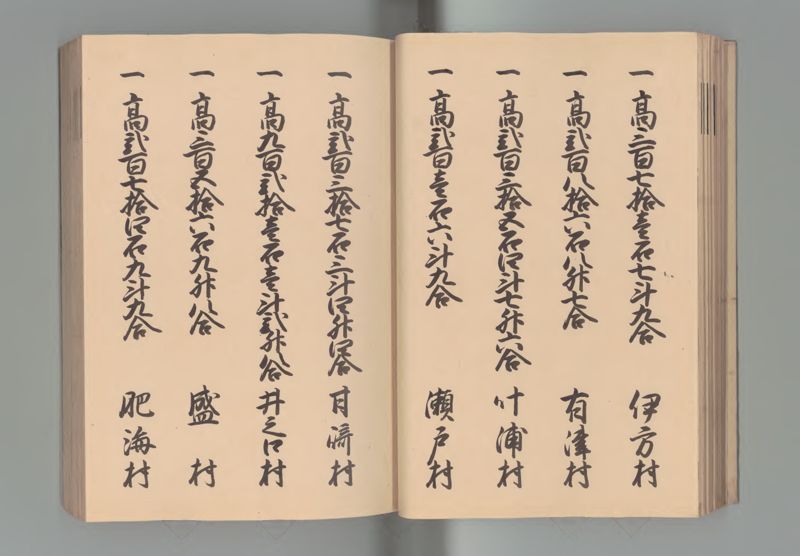 一 高三百七拾壱石七斗九合 伊方村
一 高弐百八拾六石八升七合 有津村
一 高弐百三拾五石四斗七升六合 叶浦村
一 高弐百壱石六斗九合 瀬戸村
一 高弐百三拾七石三斗四升四合 甘﨑村
一 高九百弐拾壱石壱斗弐升八合 井之口村
一 高三百五拾六石九升八合 盛村
一 高弐百七拾四石九斗九合 肥海村